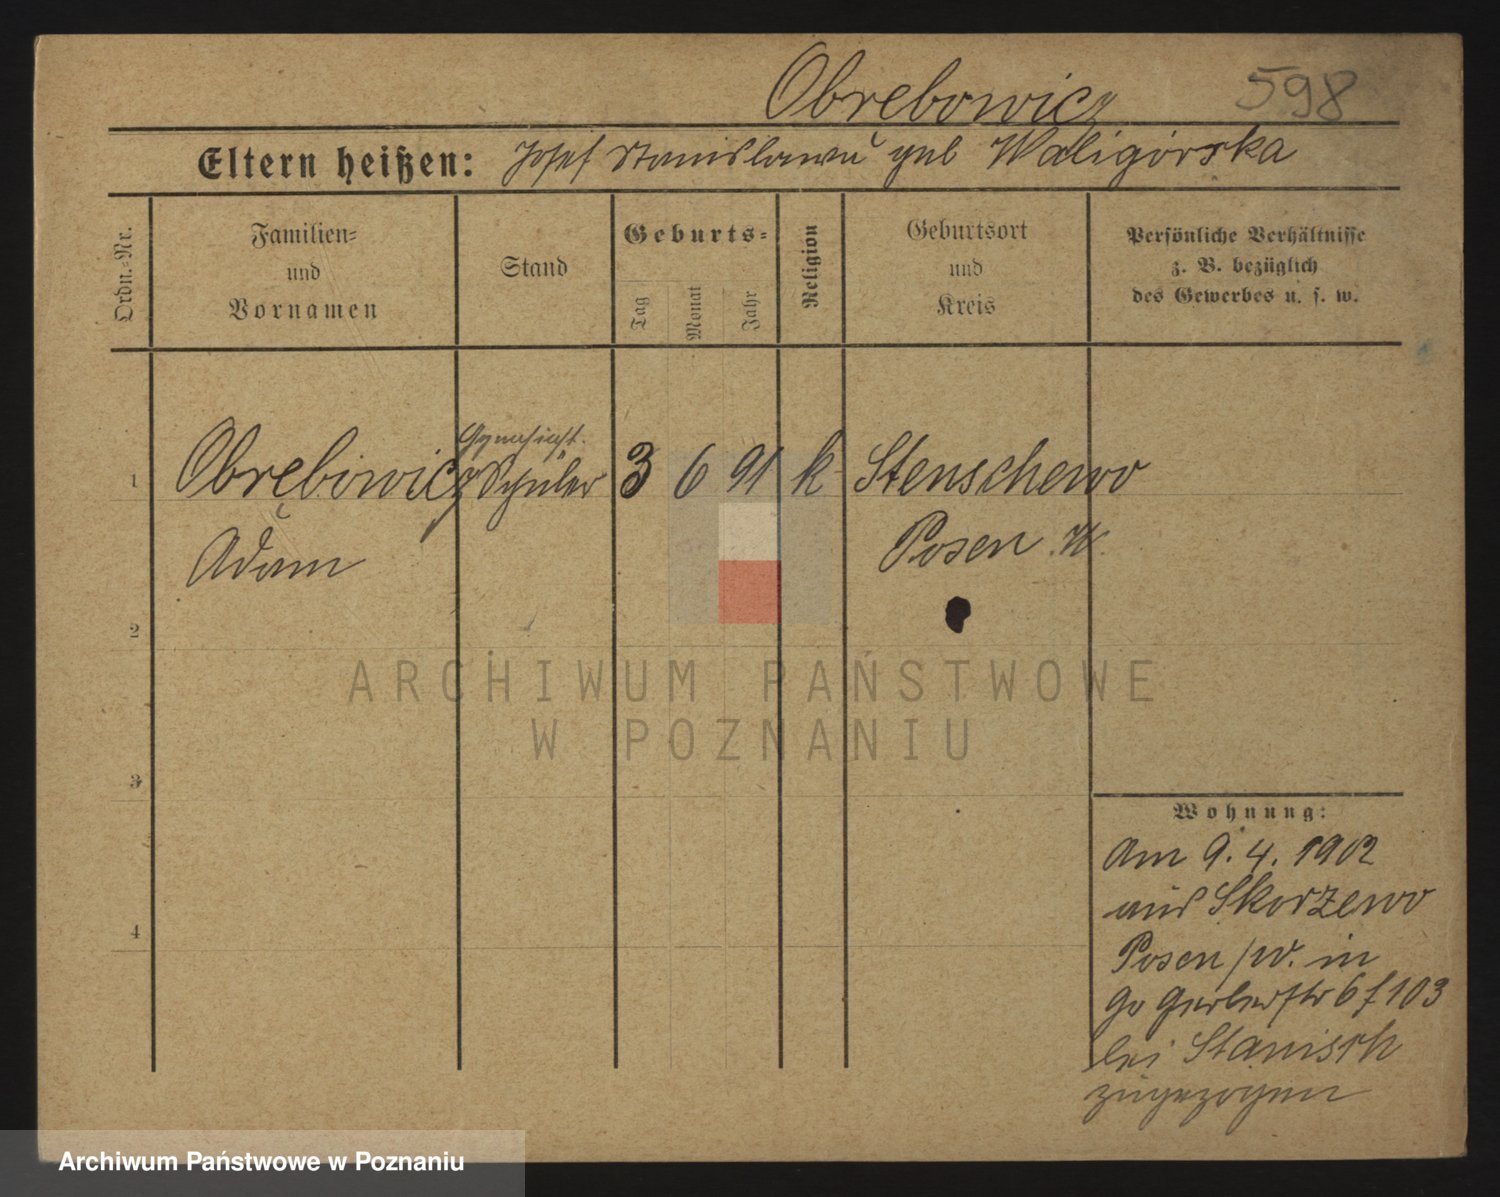 Obrebowicz 598
Eltern heißen: Josef Stanislawa geb Waligórska
Ordn.-Nr.
Familien-
und
Vornamen
Stand
Geburts-
Tag
Monat
Jahr
Religion
Geburtsort
und
Kreis
Persönliche Verhältnisse
z. B. bezüglich
des Gewerbes u. s. w.
Gymnasiast.
1 Obrębowicz Schüler 3 6 91 k Stenschewo
Adam Posen W.
2
3
4
ARCHIWUM PAŃSTWOWE
W POZNANIU
Wohnung:
Am 9. 4. 1902
aus Skorzewo
Posen /W. in
Gr Gerberstr 6 f 103
bei Stanisch
zugezogen
Archiwum Państwowe w Poznaniu